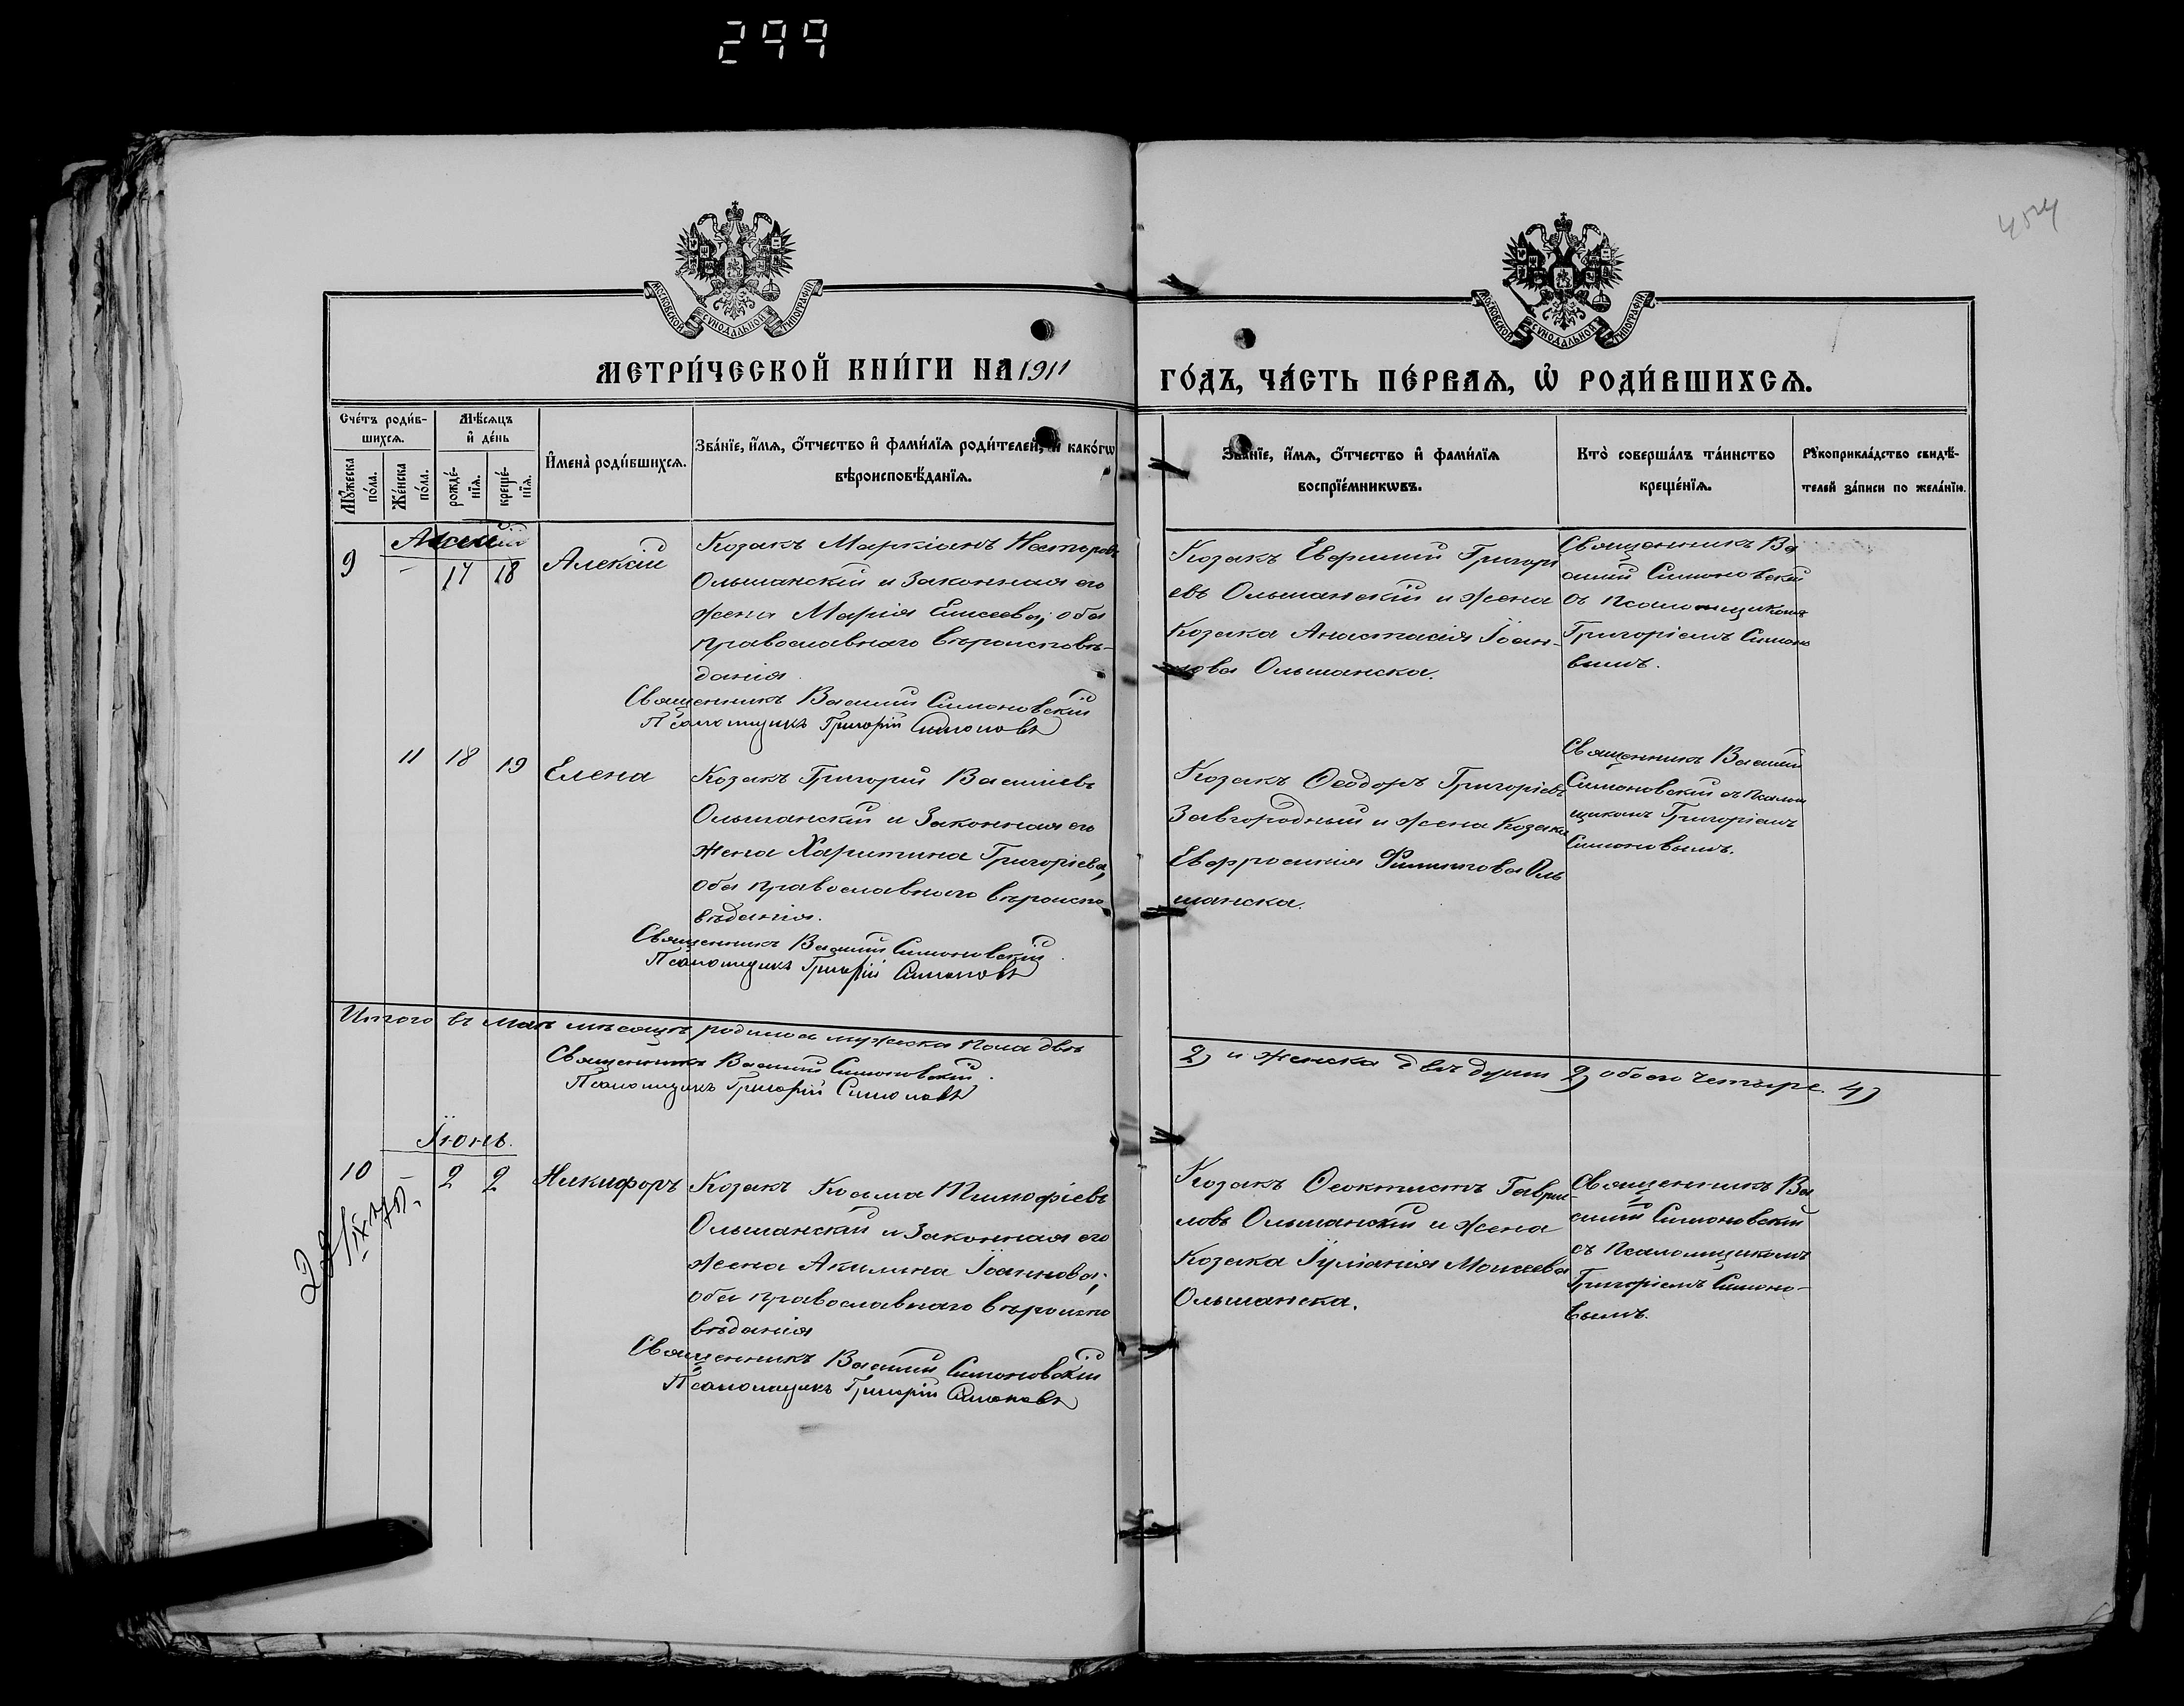 299
454
МОСКОВСКОЙ СѴНОДАЛЬНОЙ ТИПОГРАФІИ
МОСКОВСКОЙ СѴНОДАЛЬНОЙ ТИПОГРАФІИ
МЕТРИ́ЧЕСКОЙ КНИ́ГИ НА 1911
ГО́ДЪ, ЧА́СТЬ ПЕ́РВАѦ, Ѡ҆ РОДИ́ВШИХСѦ.
Сче́тъ роди́в-
шихсѧ.
Мѣ́сѧцъ
и҆ де́нь
И҆мена̀ роди́вшихсѧ.
Зва́нїе, и҆́мѧ, ѻ҆́тчество и҆ фами́лїѧ роди́телей, и҆ како́гѡ
вѣроисповѣ́данїѧ.
Мꙋ́жеска
по́ла.
Же́нска
по́ла.
рожде́-
нїѧ.
креще́-
нїѧ.
Зва́нїе, и҆́мѧ, ѻ҆́тчество и҆ фами́лїѧ
воспрїе́мникѡвъ.
Кто̀ соверша́лъ та́инство
креще́нїѧ.
Рꙋкоприкла́дство свидѣ́-
телей за́писи по жела́нїю.
9 - 17 18 Алексій
Козакъ Маркіанъ Несторовъ
Ольшанскій и законная его
жена Марія Елисеева; оба
православнаго вѣроисповѣ-
данія.
Священникъ Василій Симоновскій
Псаломщикъ Григорій Симоновъ
Козакъ Евфимій Григорі
евъ Ольшанскій и жена
Козака Анастасія Іоан-
нова Ольшанска.
Священникъ Ва
силій Симоновскій
съ псаломщикомъ
Григоріемъ Симоно
вымъ.
11 18 19 Елена
Козакъ Григорій Василіевъ
Ольшанскій и законная его
жена Харитина Григоріева,
оба православнаго вѣроиспо
вѣданія.
Священникъ Василій Симоновскій
Псаломщикъ Григорій Симоновъ
Козакъ Ѳеодоръ Григоріевъ
Завгородный и жена Козака
Евфросинія Филиппова Оль
шанска.
Священникъ Василій
Симоновскій съ псалом
щикомъ Григоріемъ
Симоновымъ.
Итого въ маѣ мѣсяцѣ родилося мужеска пола двѣ
2) и женска двѣ души 2) обоего четыре 4)
Священникъ Василій Симоновскій.
Псаломщикъ Григорій Симоновъ
Іюнь.
10 - 2 2 Никифоръ
Козакъ Косма Тимофіевъ
Ольшанскій и законная его
жена Акилина Іоаннова;
оба православнаго вѣроиспо
вѣданія
Священникъ Василій Симоновскій
Псаломщикъ Григорій Симоновъ
Козакъ Ѳеоктистъ Гаври-
ловъ Ольшанскій и жена
Козака Іуліанія Моисеева
Ольшанска.
Священникъ Ва
силій Симоновскій
съ псаломщикомъ
Григоріемъ Симоно-
вымъ.